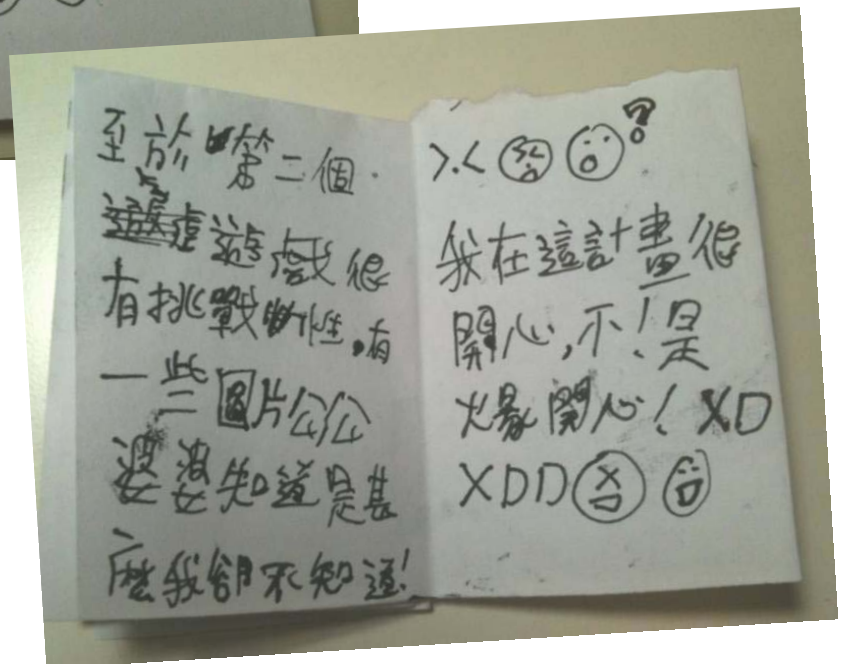 至於第二個
遊戲很
有挑戰性,有
一些圖片公公
婆婆知道是甚
麼我卻不知道!
>.< ?
我在這計畫很
開心,不!是
爆開心! XD
XDD